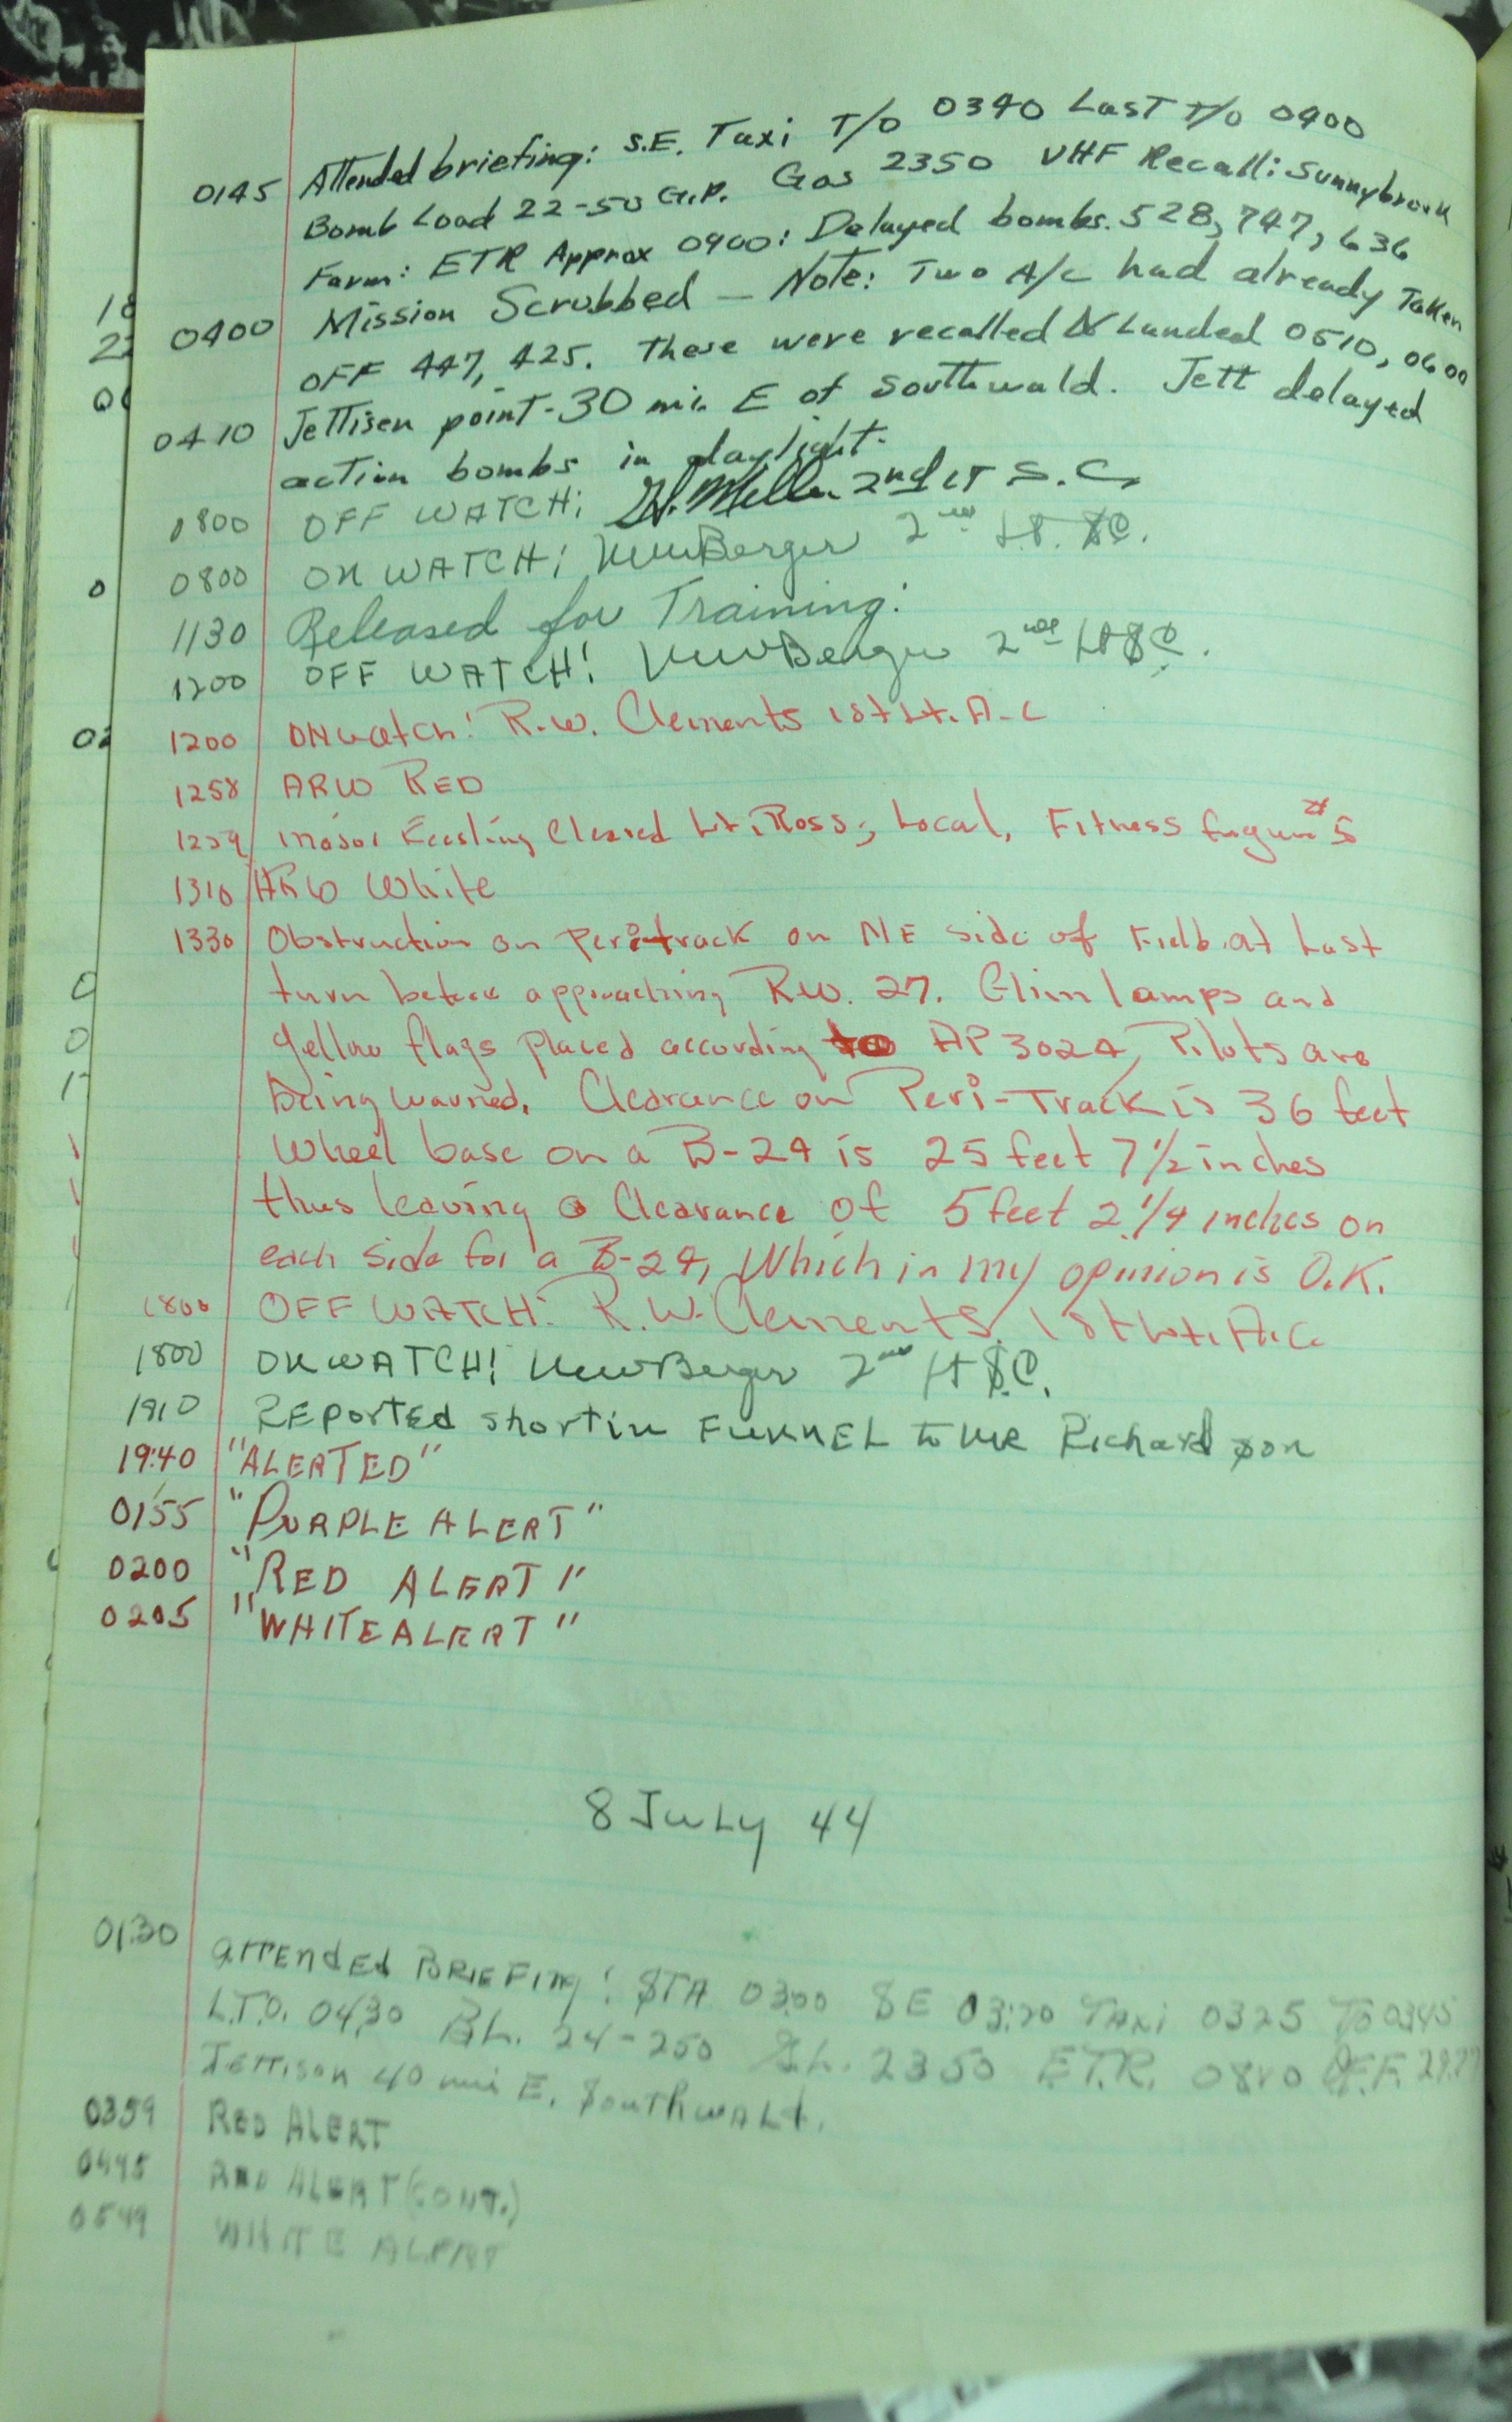 0145 Attended briefing: S.E. Taxi T/O 0340 Last T/O 0400
Bomb Load 22-50 G.P. Gas 2350 VHF Recall: Sunnybrook
Farm: ETR Approx 0900: Delayed bombs. 528, 747, 636
0400 Mission Scrubbed - Note: Two A/C had already Taken
OFF 447, 425. These were recalled & Landed 0510, 0600
0410 Jettisen point - 30 mi. E of Southwald. Jett delayed
action bombs in daylight.
0800 OFF WATCH: 2nd LT S.C.
0800 ON WATCH! NewBerger 2nd Lt. SC.
1130 Released for Training:
1200 OFF WATCH! NewBerger 2nd Lt SC.
1200 ON watch! R.W. Clements 1st Lt. A-C
1258 ARW RED
1259 Major Keesling Cleared Lt. Ross; Local, Fitness #5
1310 ARW White
1330 Obstruction on Peri-track on NE side of Field at Last
turn before approaching RW. 27. Glim lamps and
yellow flags placed according to AP 3024, Pilots are
being warned. Clearance on Peri-Track is 36 feet
Wheel base on a B-24 is 25 feet 7 1/2 inches
thus leaving a Clearance of 5 feet 2 1/4 inches on
each side for a B-24, Which in my opinion is O.K.
1800 OFF WATCH: R.W. Clements 1st Lt. A.C.
1800 ON WATCH! NewBerger 2nd Lt S.C.
1910 REPorTEd shortin FUNNEL to MR Richardson
19:40 "ALERTED"
0155 "PURPLE ALERT"
0200 "RED ALERT"
0205 "WHITE ALERT"
8 July 44
0130 ATTENdEd BRIEFing! STA 0300 SE 03:20 TAXi 0325 TO 0345
L.T.O. 0430 B.L. 24-250 2350 E.T.R. 0840
Jettison 40 mi E. SouthwALd.
0359 RED ALERT
0445 RED ALERT (CONT.)
0549 WHITE ALERT